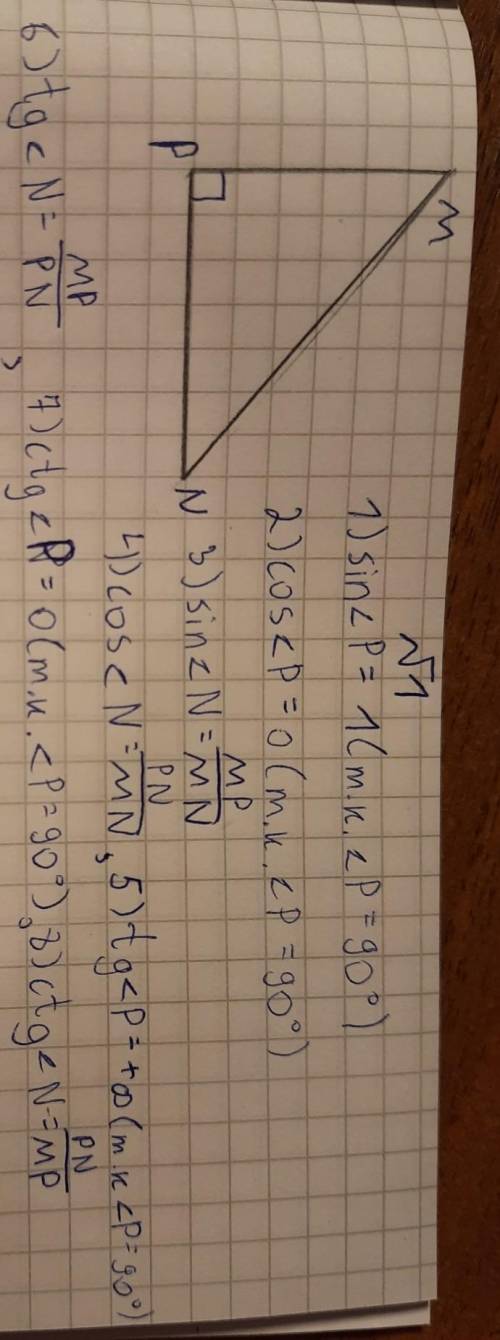 √1
M
1) sin < P = 1 (т.к. < P = 90°)
2) cos < P = 0 (т.к. < P = 90°)
P
N
3) sin < N = MP/MN
4) cos < N = PN/MN, 5) tg < P = +∞ (т.к < P = 90°)
6) tg < N = MP/PN, 7) ctg < P = 0 (т.к. < P = 90°), 8) ctg < N = PN/MP